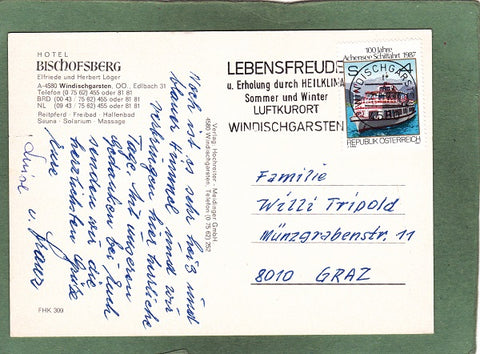 HOTEL
BISCHOFSBERG
Elfriede und Herbert Löger
A-4580 Windischgarsten, OÖ., Edlbach 31
Telefon (0 75 62) 455 oder 81 81
BRD (00 43 · 75 62) 455 oder 81 81
NL (09 43 · 75 62) 455 oder 81 81
Reitpferd · Freibad · Hallenbad
Sauna · Solarium · Massage
Noch ist es sehr heiß und
blauer Himmel und wir
verbringen hier herrliche
Tage. Mit unseren
Gedanken bei Euch
senden wir die
herzlichsten Grüße
Eure
Luise u. Franz
FHK 309
Verlag: Hochreiter · Meidinger GmbH
4580 Windischgarsten, Telefon (0 75 62) 252
LEBENSFREUDE
u. Erholung durch HEILKLIMA
Sommer und Winter
LUFTKURORT
WINDISCHGARSTEN
100 Jahre
Achensee-Schiffahrt 1987
S 4
WINDISCHGARSTEN
REPUBLIK ÖSTERREICH
Familie
Willi Tripold
Münzgrabenstr. 11
8010 GRAZ